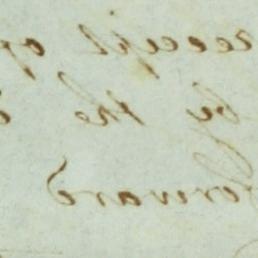 receipt of
by the
forward